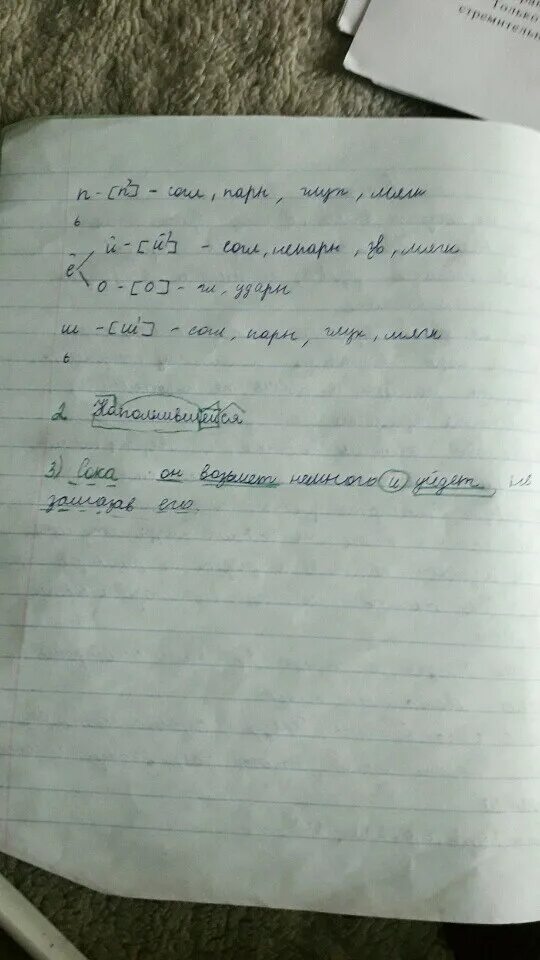 Только
стремительн
п - [п'] - согл, парн, глух, мягк
ь
ё
й - [й'] - согл, непарн, зв, мягк
о - [о] - гл, ударн
ш - [ш'] - согл, парн, глух, мягк
ь
2 Наполнившейся
3) Сока он возьмет немного и уйдет не
записав его.